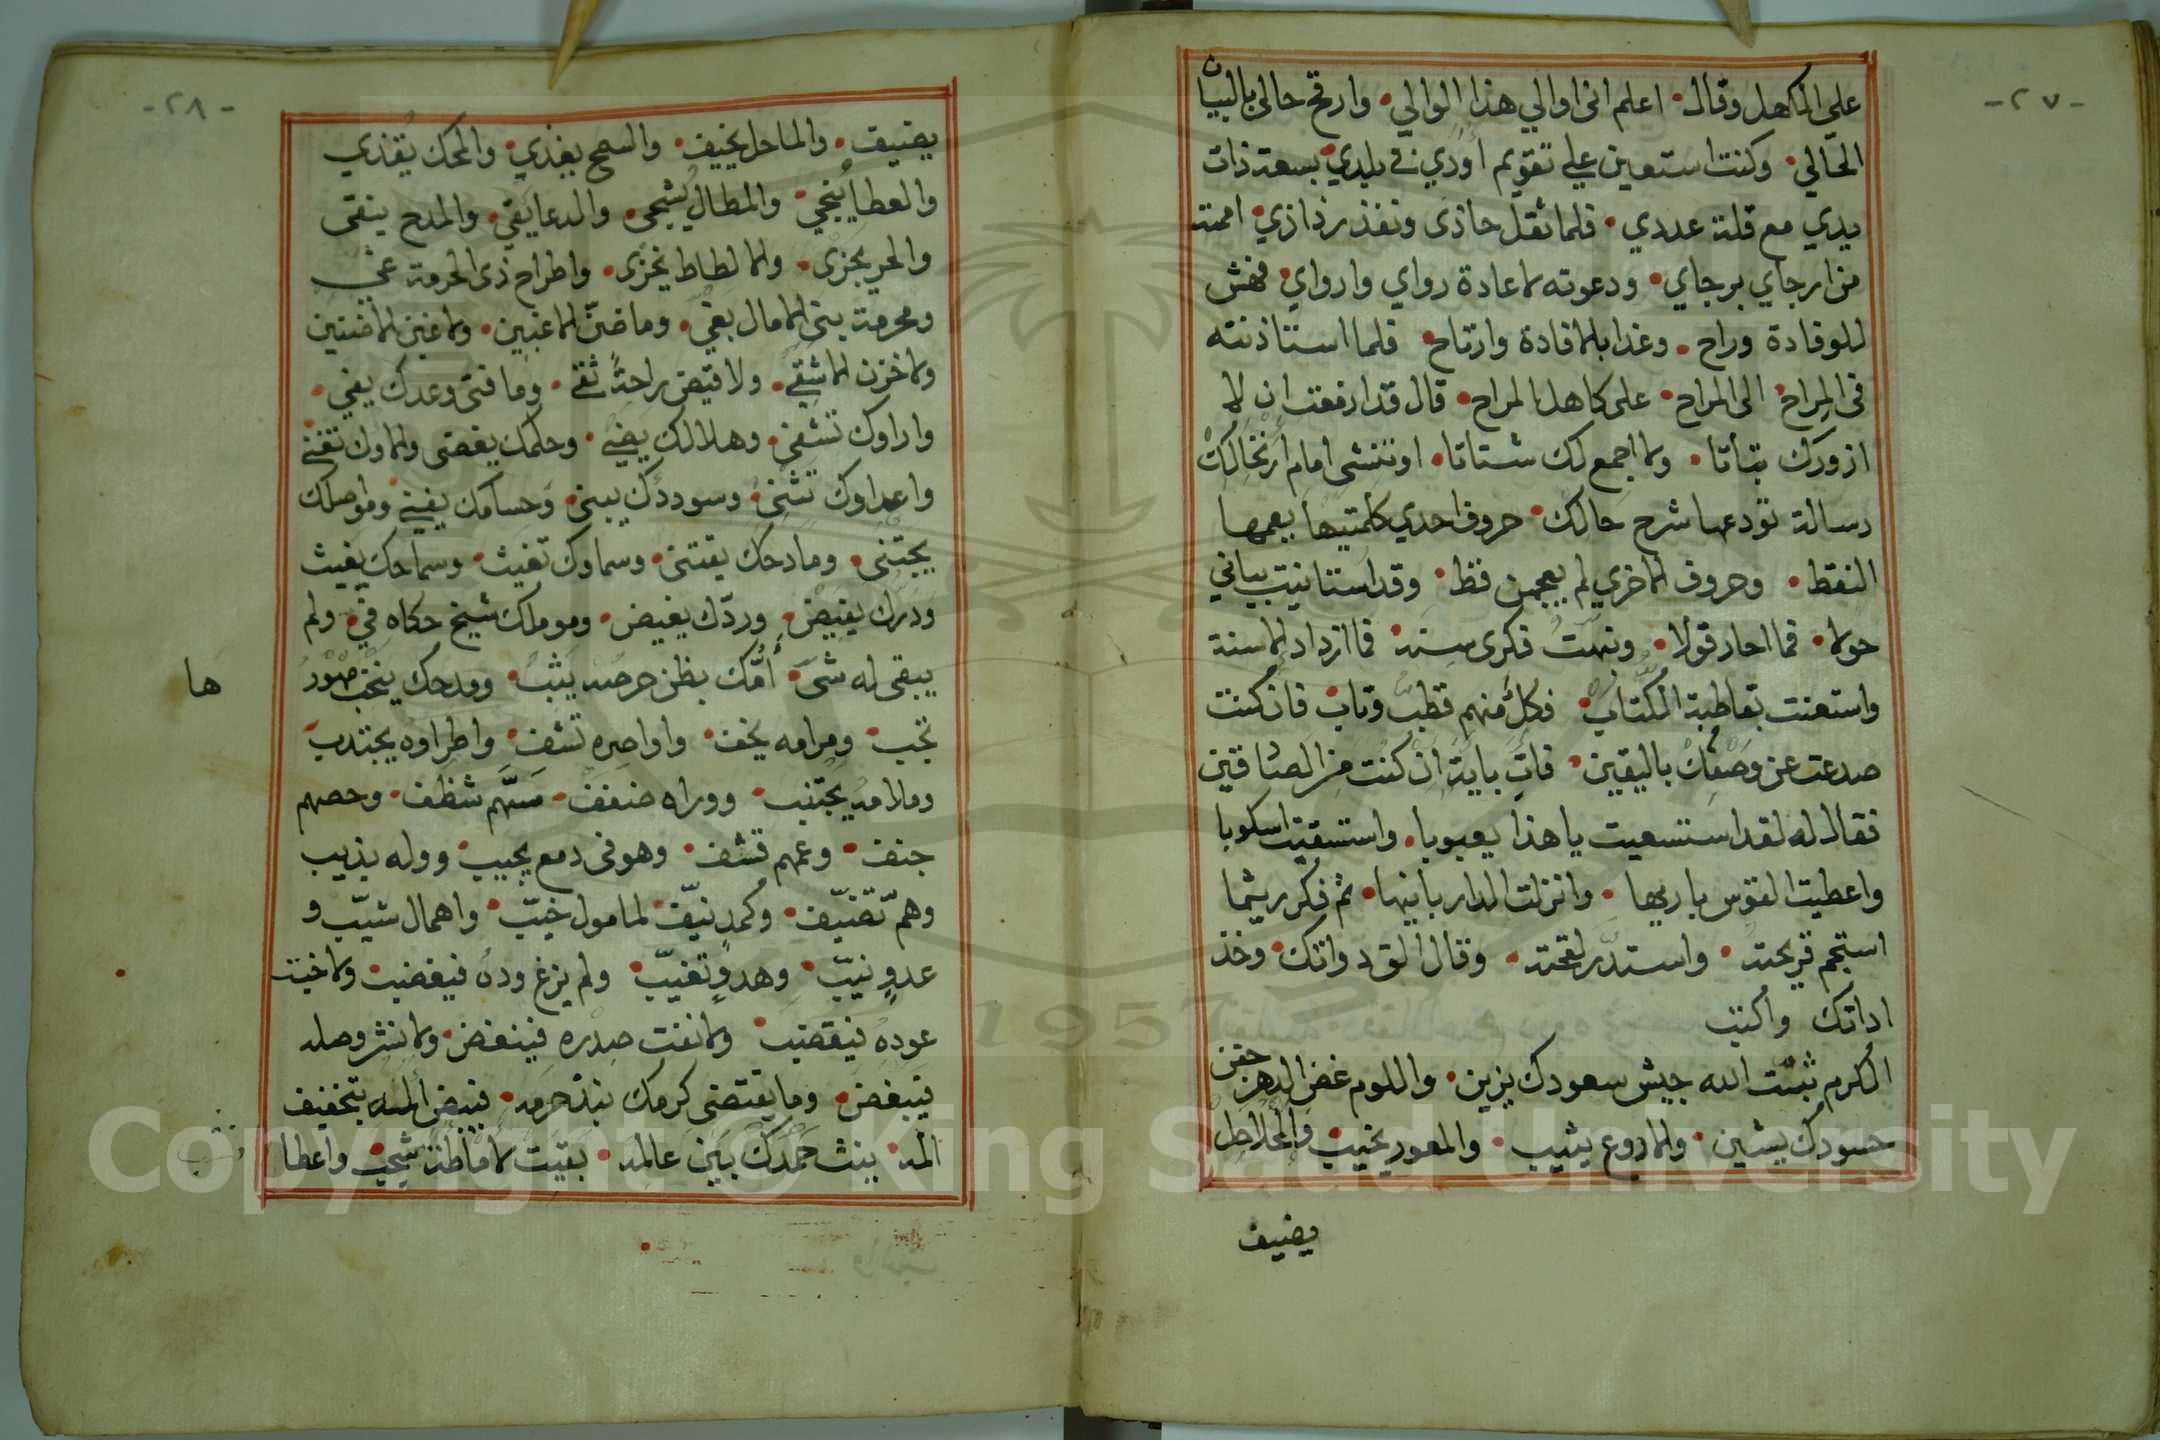 -٢٧-
على الكاهل وقال اعلم انى اوالي هذا الوالي وارقح حالى بالبيان
الحالي وكنت استعين علي تقويم اودي في بلدي بسعة ذات
يدي مع قلة عددي فلما ثقل حاذى ونفذ رذاذي اممته
من ارجاي برجاي ودعوته لاعادة رواي وارواي فهش
للوفادة وراح وغدا بالافادة وارتاح فلما استاذنته
فى المراح الى المراح على كاهل المراح قال قد ازمعت ان لا
ازودك بتاتا ولا اجمع لك شتاتا او تنشى امام ارتحالك
رسالة تودعها شرح حالك حروف احدي كلمتيها يعمها
النقط وحروف الاخري لم يعجمن قط وقد استانيت بياني
حولا فما احار قولا ونبهت فكرى سنة فما ازداد الا سنة
واستعنت بقاطبة الكتاب فكل منهم قطب وتاب فان كنت
صدعت عن وصفك باليقين فات باية ان كنت من الصادقين
فقال له لقد استسعيت يا هذا يعبوبا واستسقيت اسكوبا
واعطيت القوس باريها وانزلت الدار بانيها ثم فكر ريثما
استجم قريحته واستدر لقحته وقال الق دواتك وخذ
اداتك واكتب
الكرم ثبت الله جيش سعودك يزين واللوم غض الدهر جفن
حسودك يشين والاروع يثيب والمعور يخيب والحلاحل
يضيف
-٢٨-
يضيف والماحل يخيف والسمح يغذي والمحك يقذي
والعطا ينجي والمطال يشجى والدعا يقي والمدح ينقى
والحر يجزى والالطاط يخزى واطراح ذى الحرمة غي
ومحرمة بنى الامال بغي وما ضن الا غبين ولا غبن الا ضنين
ولا خزن الا شقي ولا قبض راحه تقي وما فتى وعدك يفي
واراوك تشفى وهلالك يضي وحلمك يغضى والاوك تغني
واعداوك تثنى وسوددك يبنى وحسامك يفني ومواصلك
يجتنى ومادحك يقتنى وسماوك تغيث وسماحك يغيث
ودرك يفيض وردك يغيض وموملك شيخ حكاه في ولم
يبقى له شى أمك بظن حرصه يثب ومدحك بنخب مهورها
تجب ومرامه يخف واواصره تشف واطراوه يجتذب
وملامه يجتنب ووراه ضفف مسهم شظف وحصهم
جنف وعمهم قشف وهو فى دمع يجيب ووله يذيب
وهم تضيف وكمد نيف لمامول خيب واهمال شيب و
عدو نيب وهدو تغيب ولم يزغ وده فيغضب ولا خبث
عوده فيقضب ولا نفث صدره فينفض ولا نشز وصله
فيبغض وما يقتضى كرمك نبذ حرمه فبيض امله بتخفيف
المه ينث حمدك بين عالمه بقيت لاماطة شجب واعطا